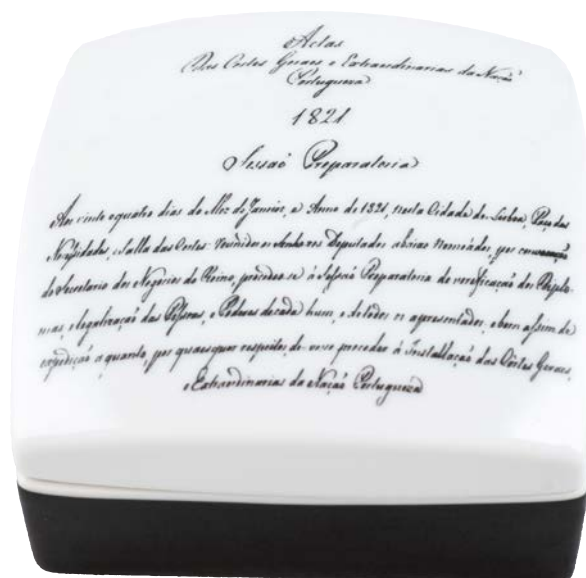 Actas
Das Cortes Geraes e Extraordinarias da Nação
Portugueza
1821
Sessaõ Preparatoria
Aos vinte e quatro dias do Mez de Janeiro, e Anno de 1821, nesta Cidade de Lisboa, Paço das
Necessidades, e Salla das Cortes reunidos os Senhores Deputados abaixo nomeados, por convocação
do Secretario dos Negocios do Reino, procedeo se á Sessaõ Preparatoria de verificação dos Diplo-
mas, e legalização das Pessoas, e Poderes de cada hum, e de todos os apresentados, e bem assim de
expedição a quanto, por quaesquer respeitos, de vesse preceder á Installação das Côrtes Geraes,
e Extraordinarias da Nação Portugueza